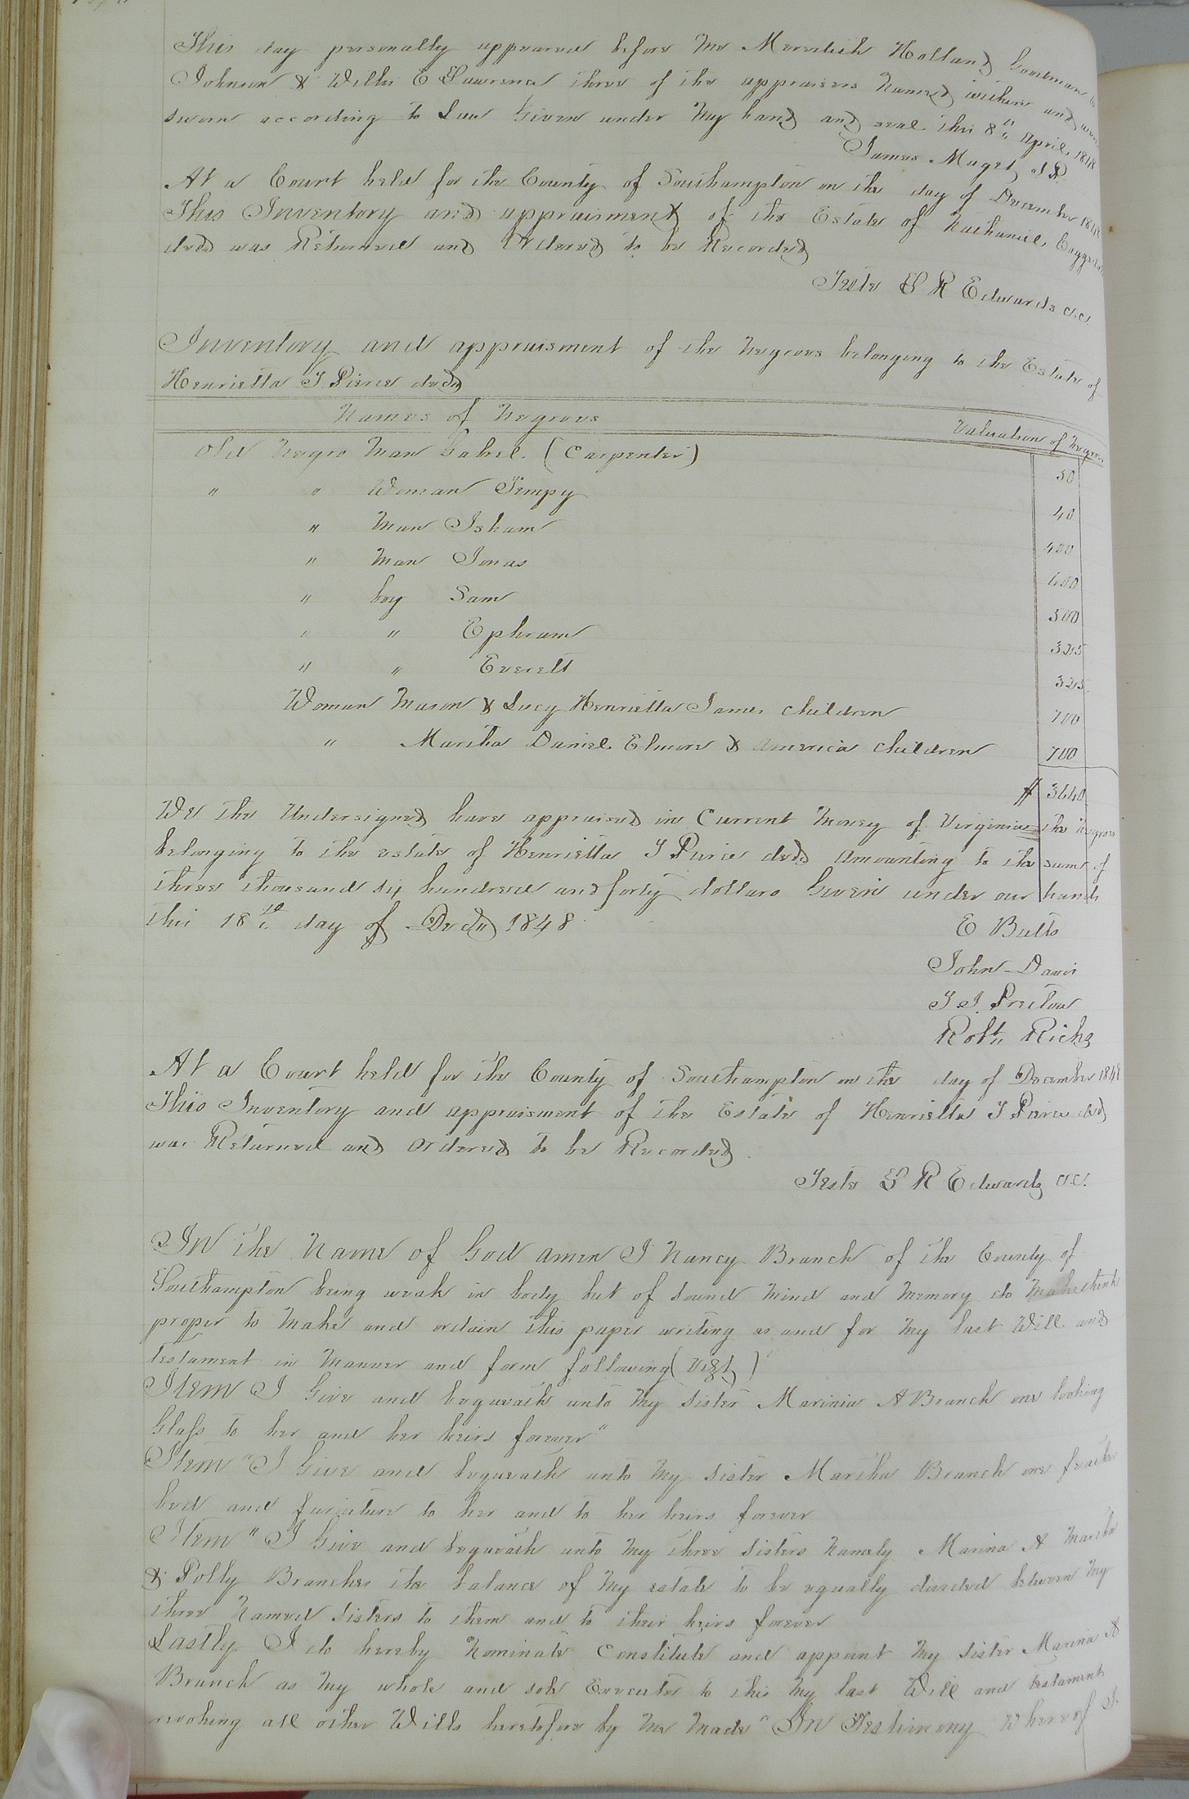 This day personally appeared before me Meredith Holland
Johnson & Willis E Lawrence three of the appraisers Named within and were
sworn according to Law Given under my hand and seal this 8th April 1848
James Maget J.P.
At a Court held for the County of Southampton on the day of December 1848
This Inventory and appraisment of the Estate of Nathaniel
decd was Returned and Ordered to be Recorded
Teste L R Edwards c.c.
Inventory and appraisment of the Negroes belonging to the Estate of
Henrietta T Pierce decd
Names of Negroes Valuation of Negroes
Old Negro Man Gabrel. (Carpenter) 50
" " Woman Tempy 40
" Man Isham 400
" Man Jonas 600
" boy Sam 500
" " Ephram 325
" " Everett 325
Woman Mason & Lucy Henrietta James children 700
" Martha Daniel Elmore & America children 700
$ 3640
We the Undersigned have appraised in Current Money of Virginia the Negroes
belonging to the estate of Henrietta T Pierce decd Amounting to the sum of
three thousand six hundred and forty dollars Given under our hands
this 18th day of Decr 1848
E Butts
John Davis
T J. Pretlow
Robt Ricks
At a Court held for the County of Southampton on the day of December 1848
This Inventory and appraisment of the Estate of Henrietta T Pierce decd
was Returned and Ordered to be Recorded.
Teste L R Edwards c.c.
In the Name of God amen I Nancy Branch of the County of
Southampton being weak in body but of Sound Mind and Memory do
proper to Make and ordain this paper writing as and for My last Will and
testament in Manner and form following (Vizt)
Item I Give and bequeath unto My Sister Marinia A Branch one looking
Glass to her and her heirs forever"
Item "I Give and bequeath unto My Sister Martha Branch one feather
bed and furniture to her and to her heirs forever
Item " I Give and bequeath unto My three Sisters Namely Marina A Martha
& Polly Branches the balance of My estate to be equally divided between My
three Named Sisters to them and to their heirs forever
Lastly I do hereby Nominate Constitute and appoint My Sister Marina A
Branch as My whole and sole Executor to this My last Will and testament
revoking all other Wills heretofore by Me Made" In Testimony Whereof I